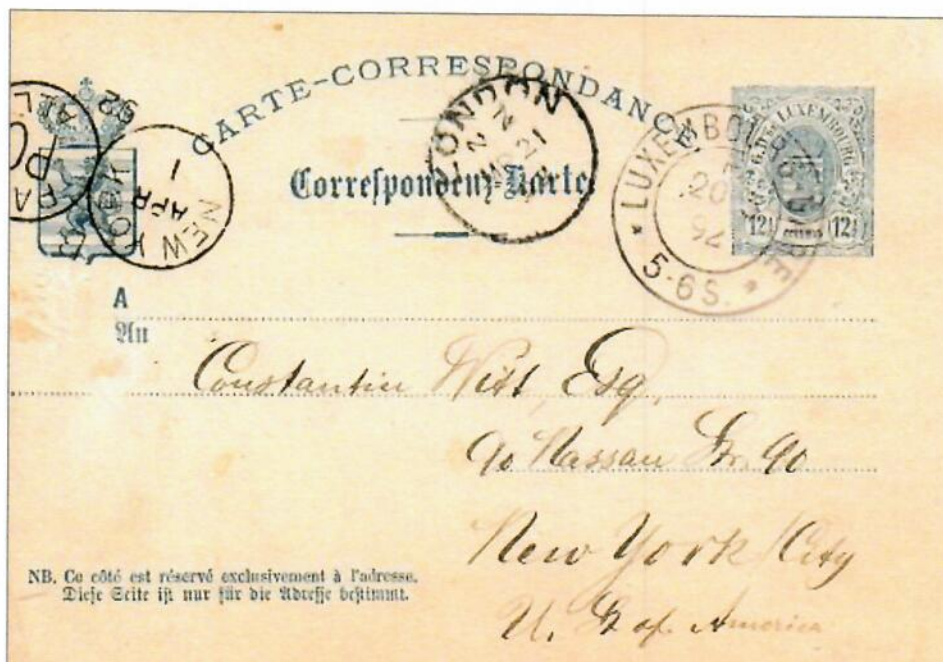 CARTE-CORRESPONDANCE
Correspondenz-Karte
G. D. DE LUXEMBOURG
12½ 12½
LUXEMBOURG-GARE
20
92
5-6 S.
LONDON
21
NEW YORK
APR
1
92
A
An
Constantin Witt, Esq.
90 Nassau Str. 90
New York City
U. S. of America
NB. Ce côté est réservé exclusivement à l'adresse.
Diese Seite ist nur für die Adresse bestimmt.